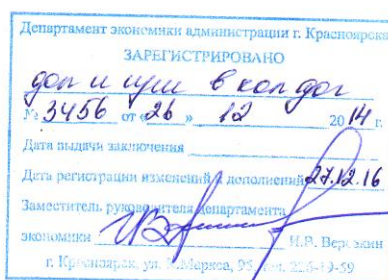 Департамент экономики администрации г. Красноярска
ЗАРЕГИСТРИРОВАНО
доп и изм в кол дог
№ 3456 от «26» 12 2014 г.
Дата выдачи заключения
Дата регистрации изменений и дополнений 27.12.16
Заместитель руководителя департамента
экономики И.В.
г. Красноярск, ул. К.Маркса, 95,